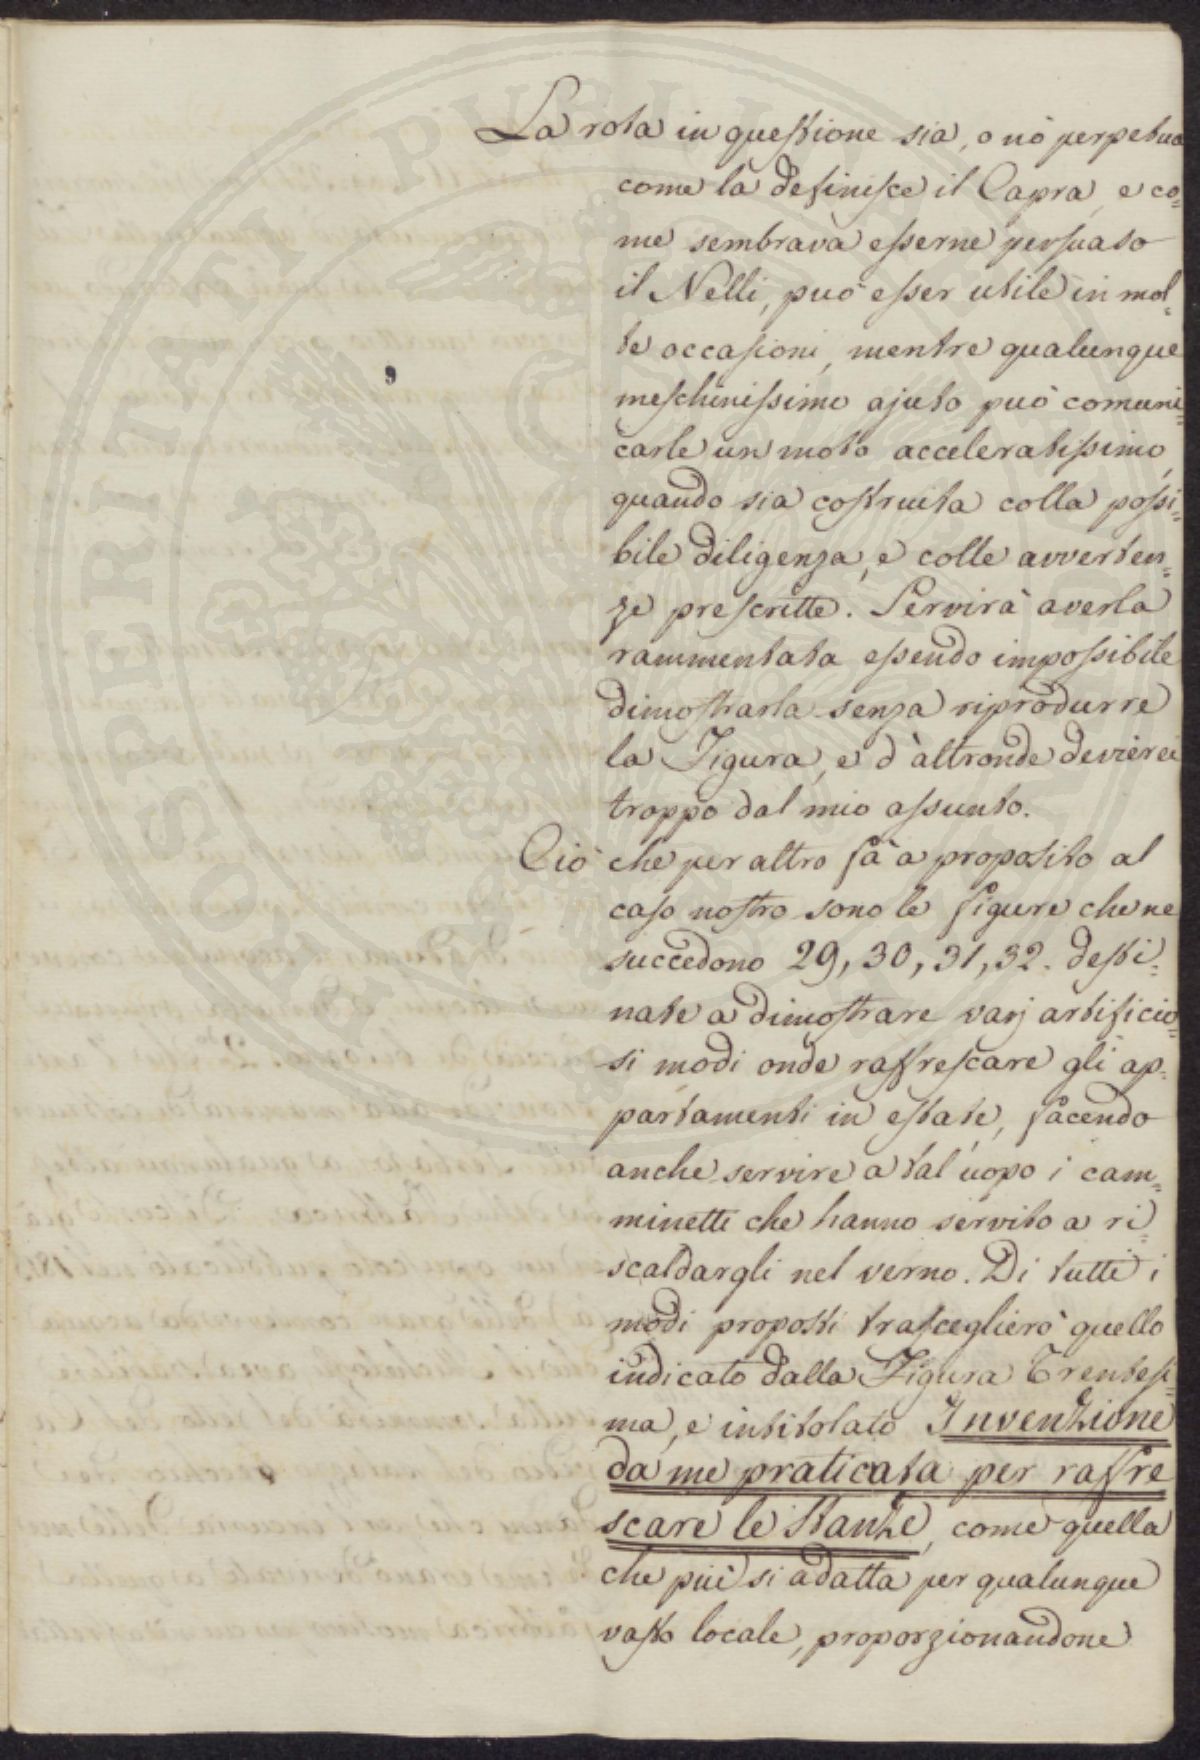 La rota in questione sia, o nò perpetua
come la definisce il Capra, e co=
me sembrava esserne persuaso
il Nelli, può esser utile in mol=
te occasioni, mentre qualunque
meschinissimo ajuto può comuni=
carle un moto acceleratissimo,
quando sia costruita colla possi=
bile diligenza, e colle avverten=
ze prescritte. Servirà averla
rammentata essendo impossibile
dimostrarla senza riprodurre
la Figura, e d'altronde devierei
troppo dal mio assunto.
Ciò che per altro fà a proposito al
caso nostro sono le figure che ne
succedono 29, 30, 31, 32. desti=
nate a dimostrare varj artificio=
si modi onde raffrescare gli ap=
partamenti in estate, facendo
anche servire a tal'uopo i cam=
minetti che hanno servito a ri=
scaldargli nel verno. Di tutti i
modi proposti trasceglierò quello
indicato dalla Figura Trentesi=
ma, e intitolato Invenzione
da me praticata per raffre
scare le Stanze, come quella
che più si adatta per qualunque
vasto locale, proporzionandone